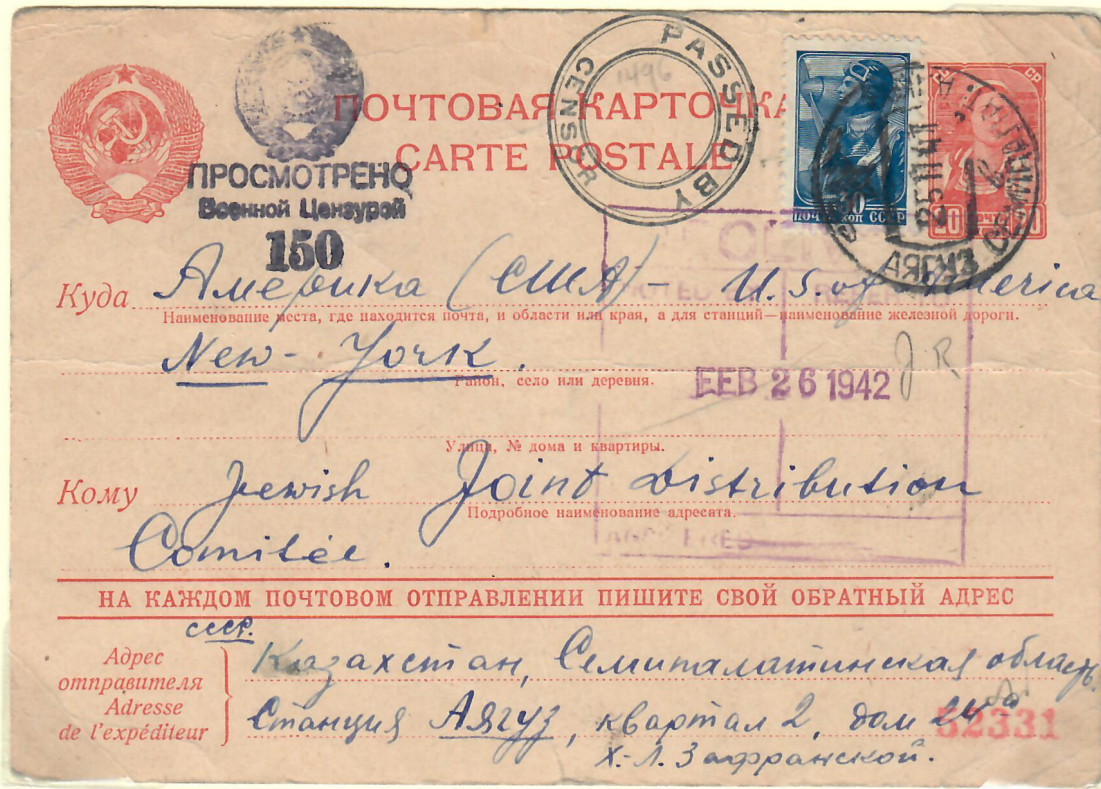 ПОЧТОВАЯ КАРТОЧКА
CARTE POSTALE
ПРОСМОТРЕНО
Военной Цензурой
150
PASSED BY
CENSOR
1496
30
ПОЧТА коп СССР
20 ПОЧТА 20
АЯГУЗ
Куда Америка (США) - U. S. of America
Наименование места, где находится почта, и области или края, а для станций—наименование железной дороги.
New-York.
Район, село или деревня.
FEB 26 1942
J R
Улица, № дома и квартиры.
Кому Jewish Joint Distribution
Подробное наименование адресата.
Comitée.
НА КАЖДОМ ПОЧТОВОМ ОТПРАВЛЕНИИ ПИШИТЕ СВОЙ ОБРАТНЫЙ АДРЕС
СССР.
Адрес отправителя
Adresse de l'expéditeur
Казахстан, Семипалатинская область.
Станция Аягуз, квартал 2, дом 24
52331
Х.-Л. Зафранской.